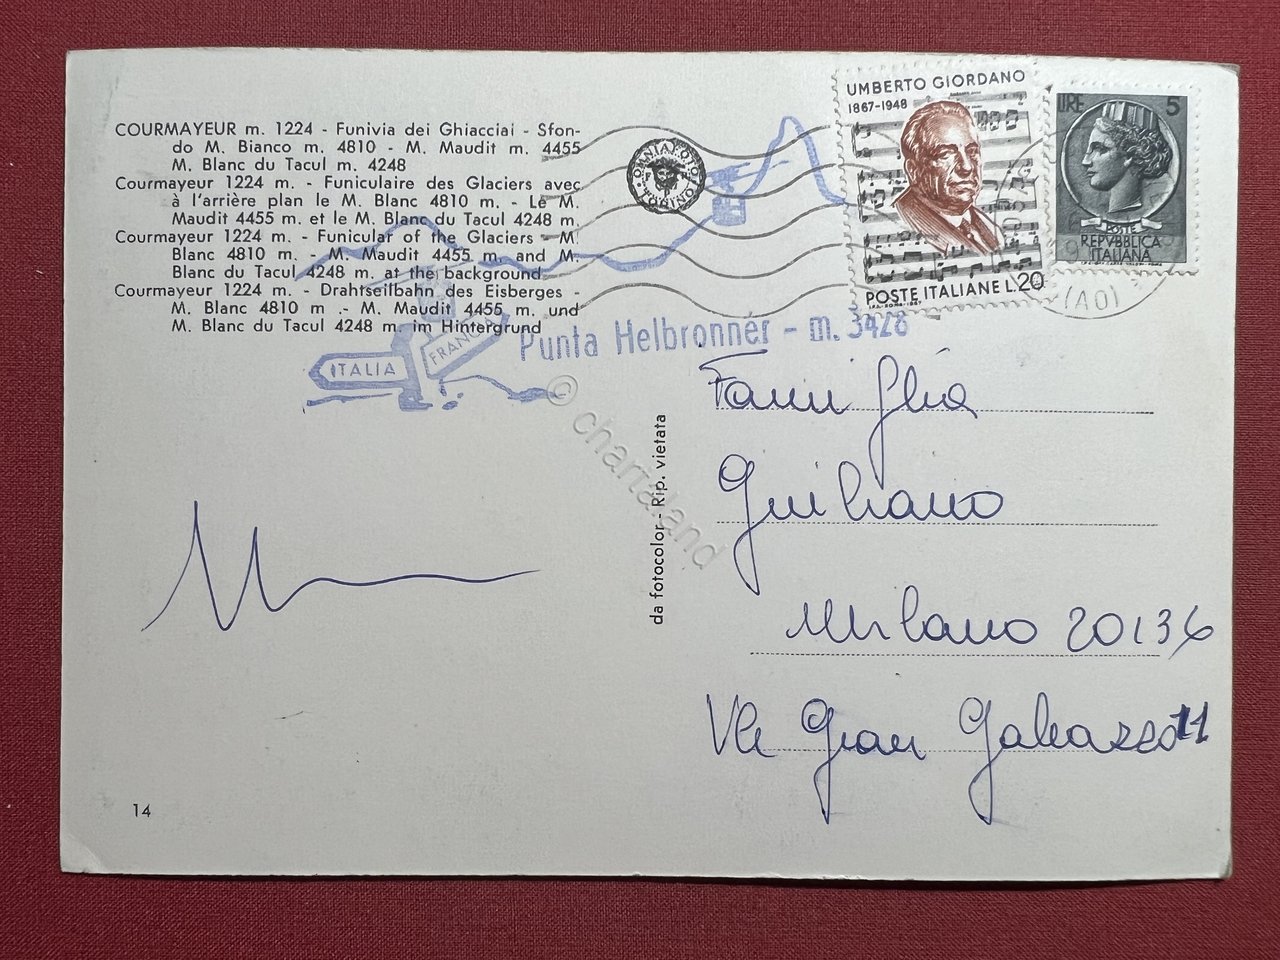 COURMAYEUR m. 1224 - Funivia dei Ghiacciai - Sfon-
do M. Bianco m. 4810 - M. Maudit m. 4455
M. Blanc du Tacul m. 4248
Courmayeur 1224 m. - Funiculaire des Glaciers avec
à l'arrière plan le M. Blanc 4810 m. - Le M.
Maudit 4455 m. et le M. Blanc du Tacul 4248 m.
Courmayeur 1224 m. - Funicular of the Glaciers - M.
Blanc 4810 m. - M. Maudit 4455 m. and M.
Blanc du Tacul 4248 m. at the background.
Courmayeur 1224 m. - Drahtseilbahn des Eisberges -
M. Blanc 4810 m .- M. Maudit 4455 m. und
M. Blanc du Tacul 4248 m. im Hintergrund
OMNIAFOTO TORINO
UMBERTO GIORDANO
1867-1948
POSTE ITALIANE L.20
LIRE 5
POSTE
REPVBBLICA
ITALIANA
(AO)
ITALIA
FRANC
Punta Helbronner - m. 3428
© chartaland
da fotocolor - Rip. vietata
Famiglia
Giuliano
Milano 20136
Vle Gian Galeazzo 11
14